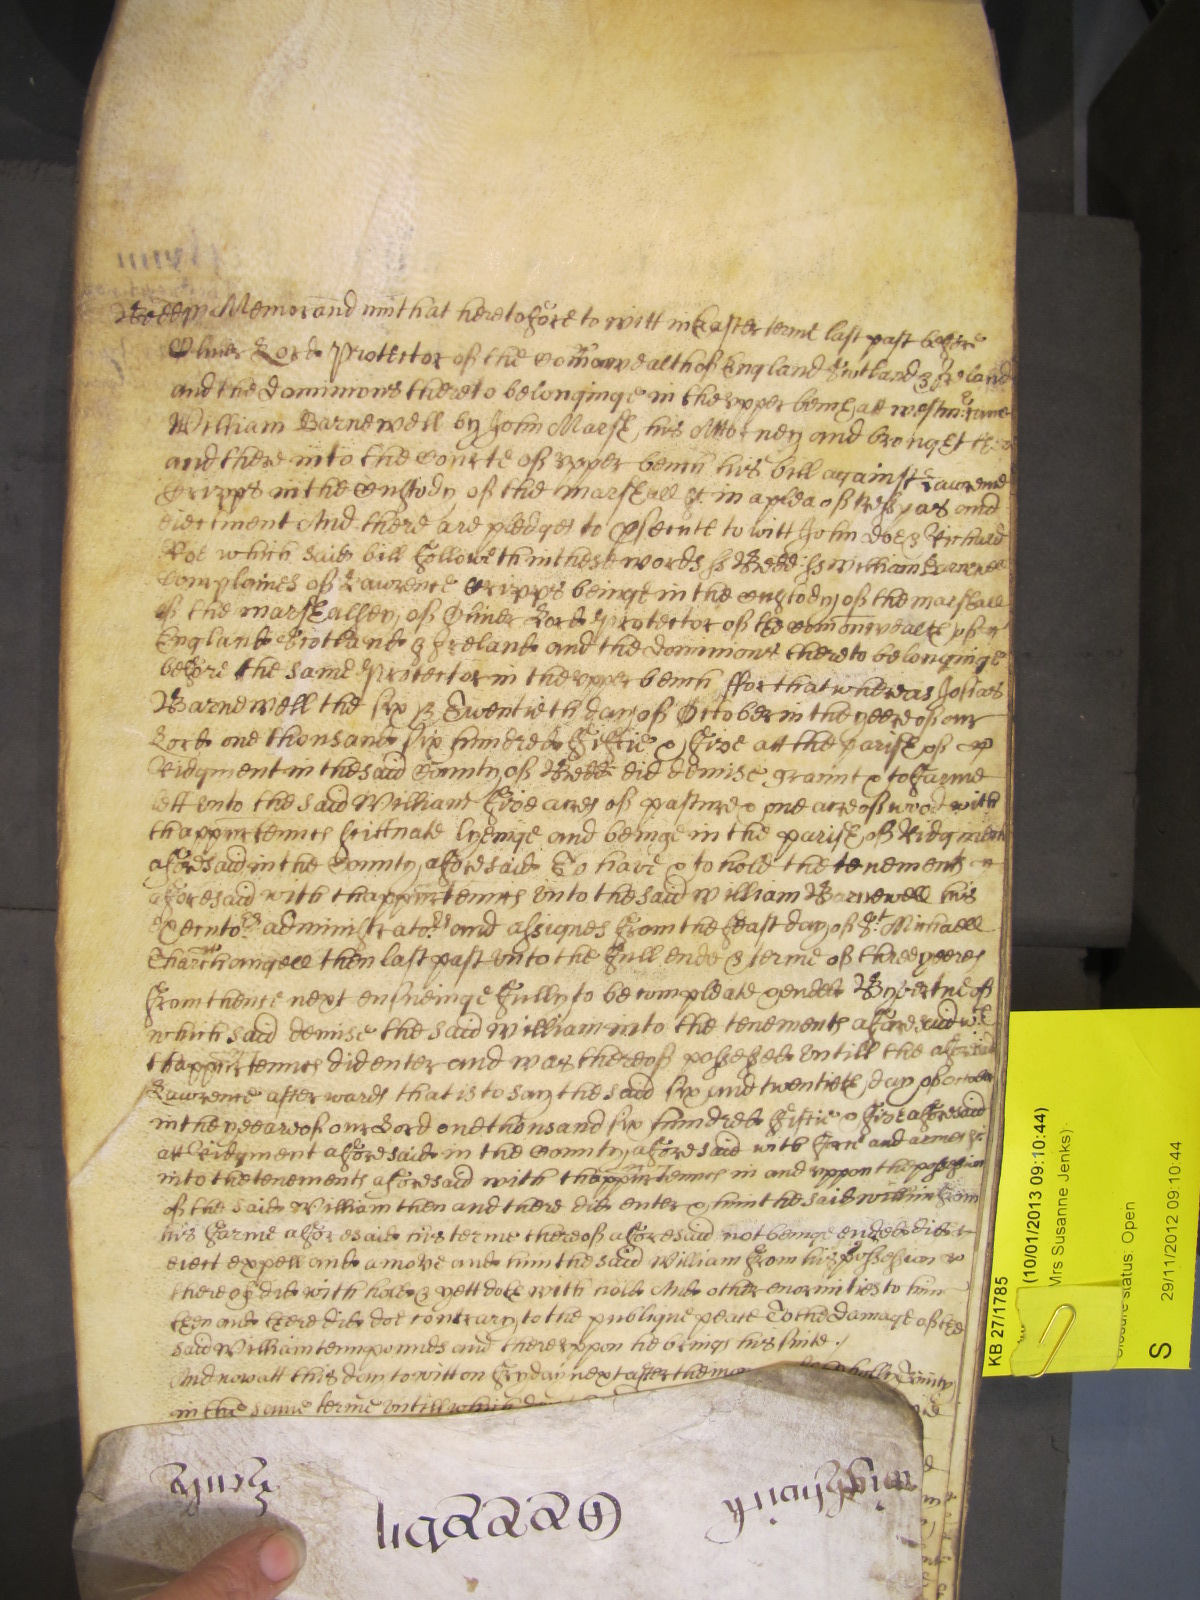 Bedd ss Memorandum that heretofore to witt in Easter terme last past before
Oliver Lord Protector of the Comonwealth of England Scotland & Ireland
and the dominions thereto belonginge in the upper bench att westmr came
William Barnewell by John Marsh his Attorney and brought
and there into the Courte of upper bench his bill against Lawrence
Cripps in the Custody of the marshall &c in a plea of trespas and
eiectment And there are pledges to psecute to witt John Doe & Richard
Roe which said bill followeth in these words ss Bedd ss William Barnewell
Complaines of Lawrence Cripps beinge in the Custody of the marshall
of the marshallsey of Oliver Lord Protector of the Comonwealth of
England Scotland & Ireland and the dominions thereto belonginge
before the same Protector in the upper bench ffor that whereas Josias
Barnewell the six & Twentieth day of October in the yeere of our
Lord one thousand six hundred fiftie & five att the parish of
Ridgment in the said County of Bedd did demise graunt & to farme
lett unto the said William five acres of pasture & one acre of wood with
thappurtennces scittuate lyeinge and beinge in the parish of Ridgment
aforesaid in the County aforesaid To have & to hold the tenements
aforesaid with thappurtennces unto the said William Barnewell his
Executors administrators and assignes from the feast day of St Michaell
Tharchangell then last past unto the full ende & terme of three yeeres
from thence next ensueinge fully to be compleate & ended By vertue of
which said demise the said William into the tenements aforesaid wth
thappurtennces did enter and was thereof possessed untill the aforesaid
Lawrence afterwards that is to say the said six and twentieth day of October
in the yeare of our Lord one thousand six hundred fiftie & five aforesaid
att Ridgment aforesaid in the County aforesaid with force and armes &c
into the tenements aforesaid with thappurtennces in and uppon the possession
of the said William then and there did enter & him the said William from
his farme aforesaid his terme thereof aforesaid not beinge ended did
eiect expell and amove and him the said William from his possession
thereof did with hold & yett doth with hold And other enormities to him
then and there did doe contrary to the publique peace To the damage of the
said William tenn pounds and thereuppon he brings his suite /
And now att this day to witt on fryday next after the holly Trinity
in the same terme untill which
KB 27/1785
(10/01/2013 09:10:44)
Mrs Susanne Jenks)
Closure status: Open
S
29/11/2012 09:10:44